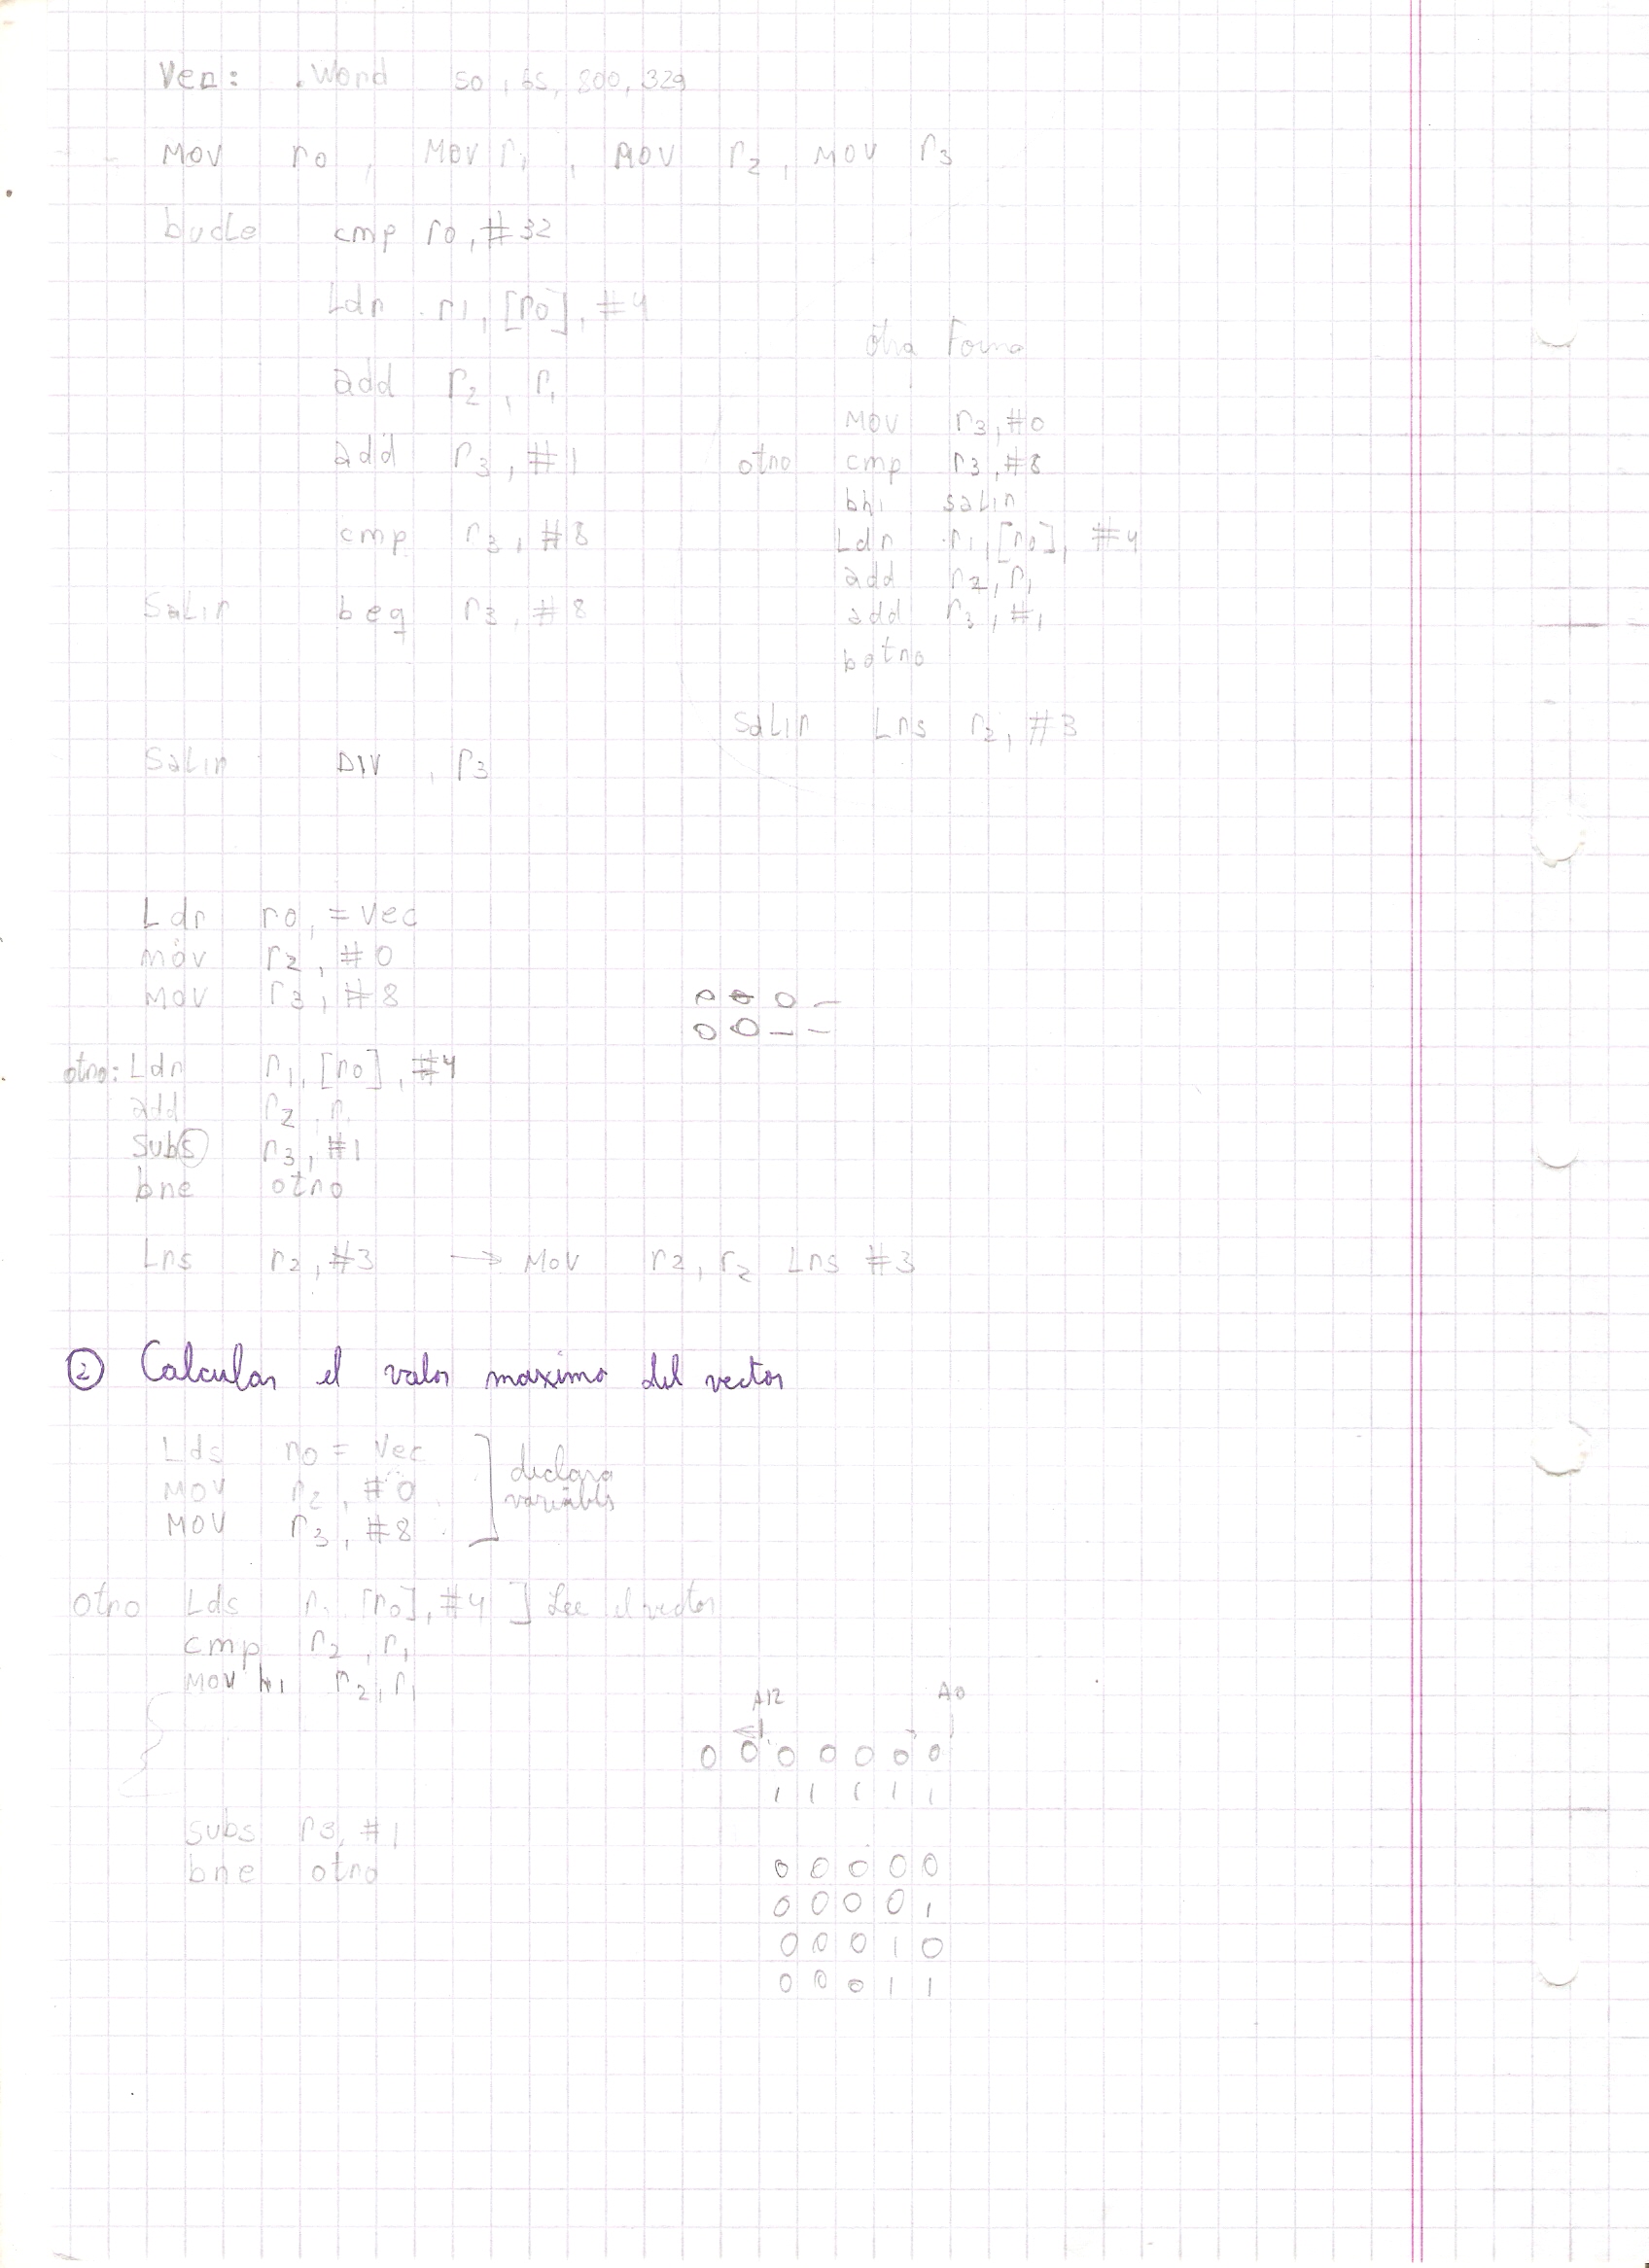 Vec: .Word 50, 65, 800, 329
MOV r0, MOV r1, MOV r2, MOV r3
bucle cmp r0, #32
Ldr r1, [r0], #4
add r2, r1
add r3, #1
cmp r3, #8
Salir beq r3, #8
Salir DIV , r3
otra Forma
MOV r3, #0
otro cmp r3, #8
bhi salir
Ldr r1, [r0], #4
add r2, r1
add r3, #1
b otro
Salir Lrs r2, #3
Ldr r0, =Vec
mov r2, #0
MOV r3, #8
0 0 0 –
0 0 – –
otro: Ldr r1, [r0], #4
add r2, r1
Subs r3, #1
bne otro
Lrs r2, #3 → MOV r2, r2 Lrs #3
② Calcular el valor maximo del vector
Lds r0 = Vec
MOV r2, #0
MOV r3, #8
declara
variables
otro Lds r1 [r0], #4 ] Lee el vector
cmp r2, r1
MOV hi r2, r1
A12 A0
0 0 0 0 0 0 0
1 1 1 1 1
subs r3, #1
bne otro
0 0 0 0 0
0 0 0 0 1
0 0 0 1 0
0 0 0 1 1